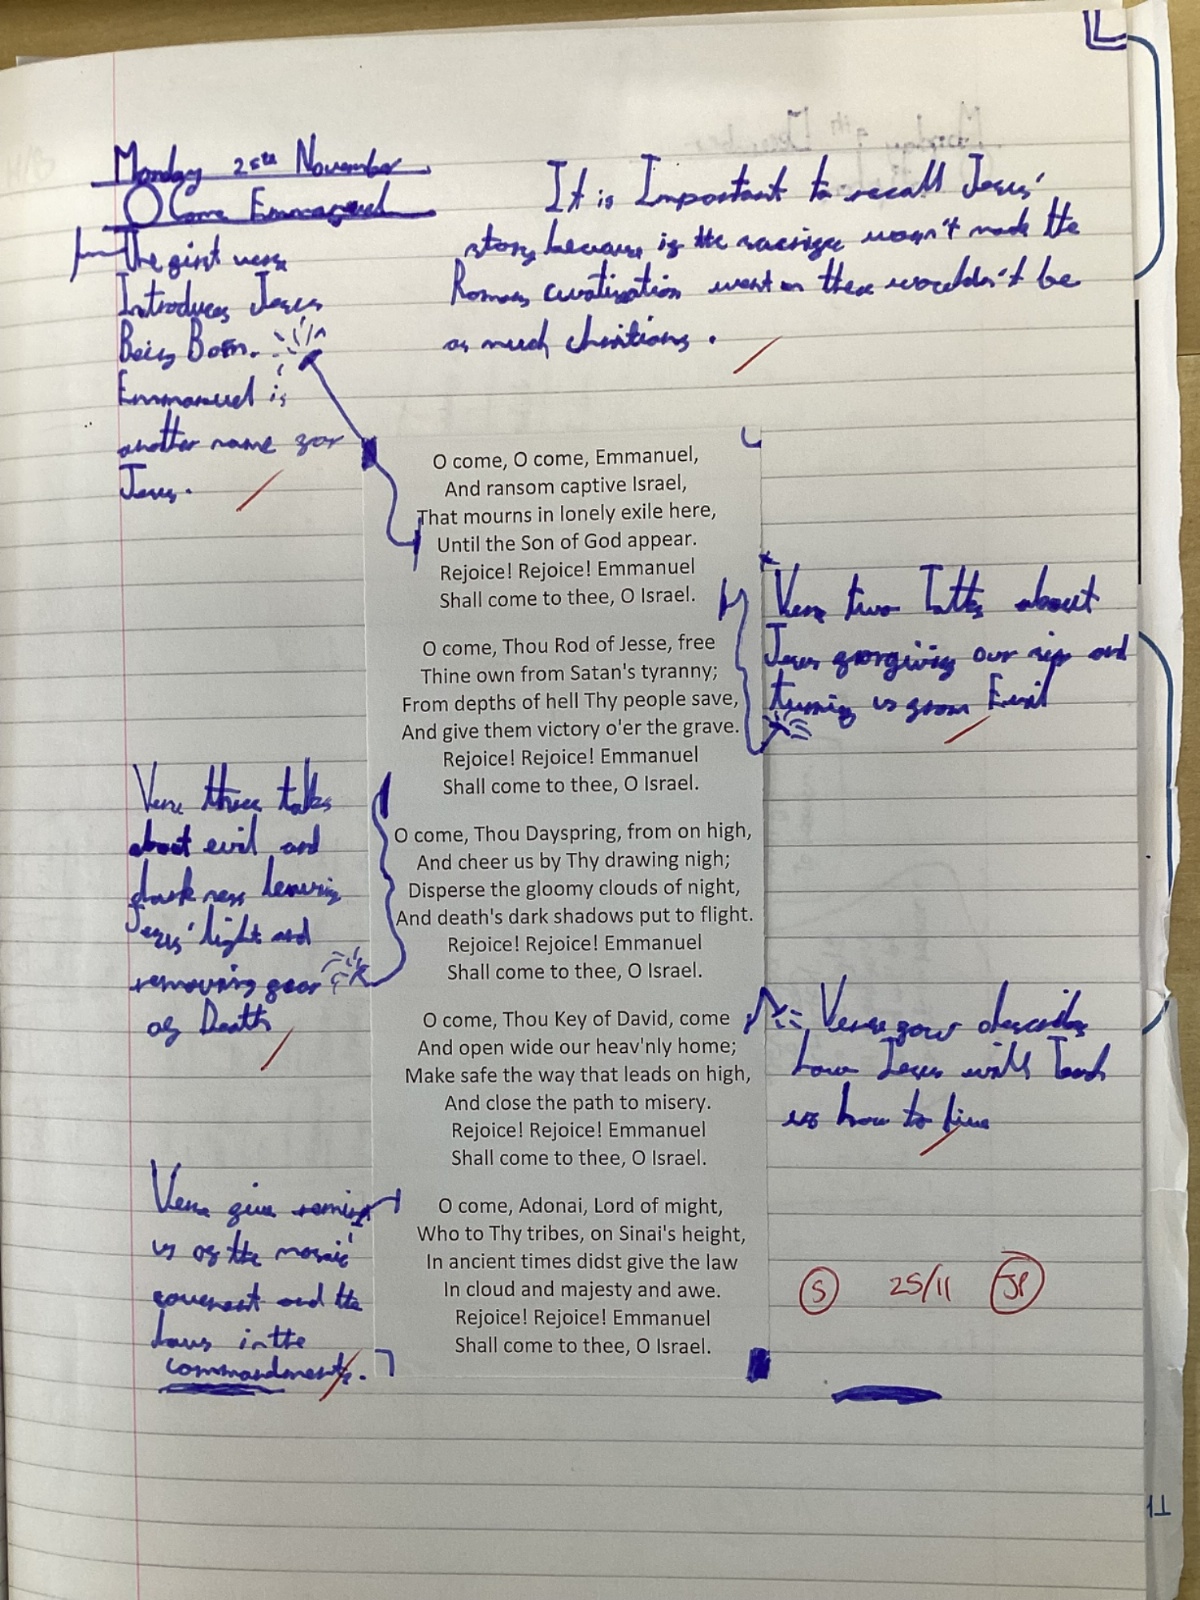 Monday 25th November
O Come Emmanuel
The first verse
Introduces Jesus
Being Born.
Emmanuel is
another name for
Jesus.
It is Important to recall Jesus'
story because if the sacrifice wasn't made the
Roman civilisation went on there wouldn't be
as much christians.
O come, O come, Emmanuel,
And ransom captive Israel,
That mourns in lonely exile here,
Until the Son of God appear.
Rejoice! Rejoice! Emmanuel
Shall come to thee, O Israel.
Verse two Talks about
Jesus forgiving our sins and
turning us from Evil
O come, Thou Rod of Jesse, free
Thine own from Satan's tyranny;
From depths of hell Thy people save,
And give them victory o'er the grave.
Rejoice! Rejoice! Emmanuel
Shall come to thee, O Israel.
Verse three talks
about evil and
darkness leaving
Jesus' light and
removing fear
of Death
O come, Thou Dayspring, from on high,
And cheer us by Thy drawing nigh;
Disperse the gloomy clouds of night,
And death's dark shadows put to flight.
Rejoice! Rejoice! Emmanuel
Shall come to thee, O Israel.
Verse four describes
how Jesus will Teach
us how to live
O come, Thou Key of David, come
And open wide our heav'nly home;
Make safe the way that leads on high,
And close the path to misery.
Rejoice! Rejoice! Emmanuel
Shall come to thee, O Israel.
Verse five remins
us of the mosaic
covenant and the
laws in the
commandments.
O come, Adonai, Lord of might,
Who to Thy tribes, on Sinai's height,
In ancient times didst give the law
In cloud and majesty and awe.
Rejoice! Rejoice! Emmanuel
Shall come to thee, O Israel.
S 25/11 JP